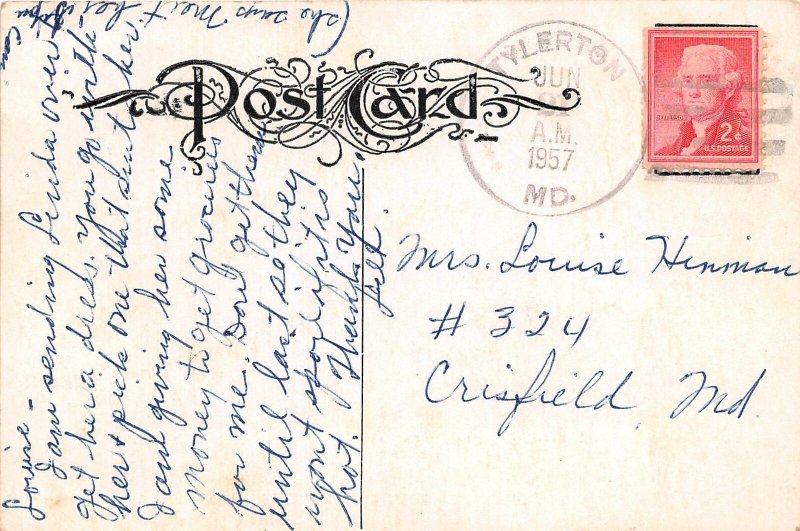 Post Card
TYLERTON
JUN
A.M.
1957
MD.
JEFFERSON
2¢
U.S. POSTAGE
Mrs. Louise Hinman
# 324
Crisfield, Md.
Louise –
I am sending Linda over to
get her a dress. You go with
her & pick one that suits her
I am giving her some
money to get groceries
for me. Don't get them
until last so they
wont spoil if it is
hot. Thank You.
(she says Meit her